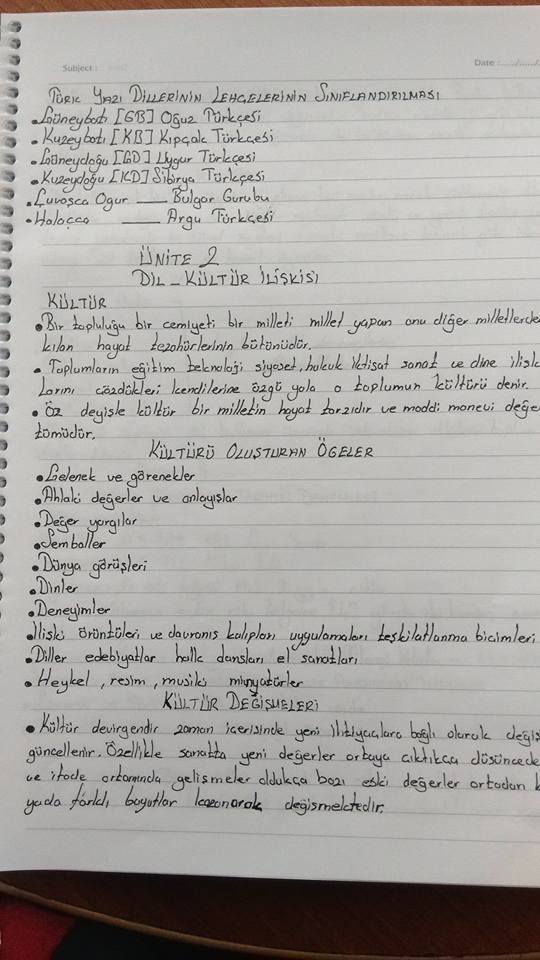 Subject :
Date : ...../...../
TÜRK YAZI DİLLERİNİN LEHÇELERİNİN SINIFLANDIRILMASI
• Güneybatı [GB] Oğuz Türkçesi
• Kuzeybatı [KB] Kıpçak Türkçesi
• Güneydoğu [GD] Uygur Türkçesi
• Kuzeydoğu [KD] Sibirya Türkçesi
• Çuvaşca Ogur — Bulgar Gurubu
• Halaçca — Argu Türkçesi
ÜNİTE 2
DİL - KÜLTÜR İLİŞKİSİ
KÜLTÜR
• Bir topluluğu bir cemiyeti bir milleti millet yapan onu diğer milletlerde
kılan hayat tezahürlerinin bütünüdür.
• Toplumların eğitim teknoloji siyaset, hukuk iktisat sanat ve dine ilişk
larını çözdükleri kendilerine özgü yola o toplumun kültürü denir.
• Öz deyişle kültür bir milletin hayat tarzıdır ve maddi manevi değe
tümüdür.
KÜLTÜRÜ OLUŞTURAN ÖGELER
• Gelenek ve görenekler
• Ahlaki değerler ve anlayışlar
• Değer yargılar
• Semboller
• Dünya görüşleri
• Dinler
• Deneyimler
• İlişki örüntüleri ve davranış kalıpları uygulamaları teşkilatlanma biçimleri
• Diller edebiyatlar halk dansları el sanatları
• Heykel, resim, musiki minyatürler
KÜLTÜR DEĞİŞMELERİ
• Kültür devirgendir zaman içerisinde yeni ihtiyaçlara bağlı olarak değiş
güncellenir. Özellikle sanatta yeni değerler ortaya çıktıkça düşüncede
ve ifade ortamında gelişmeler oldukça bazı eski değerler ortadan k
yada farklı boyutlar kazanarak değişmektedir.